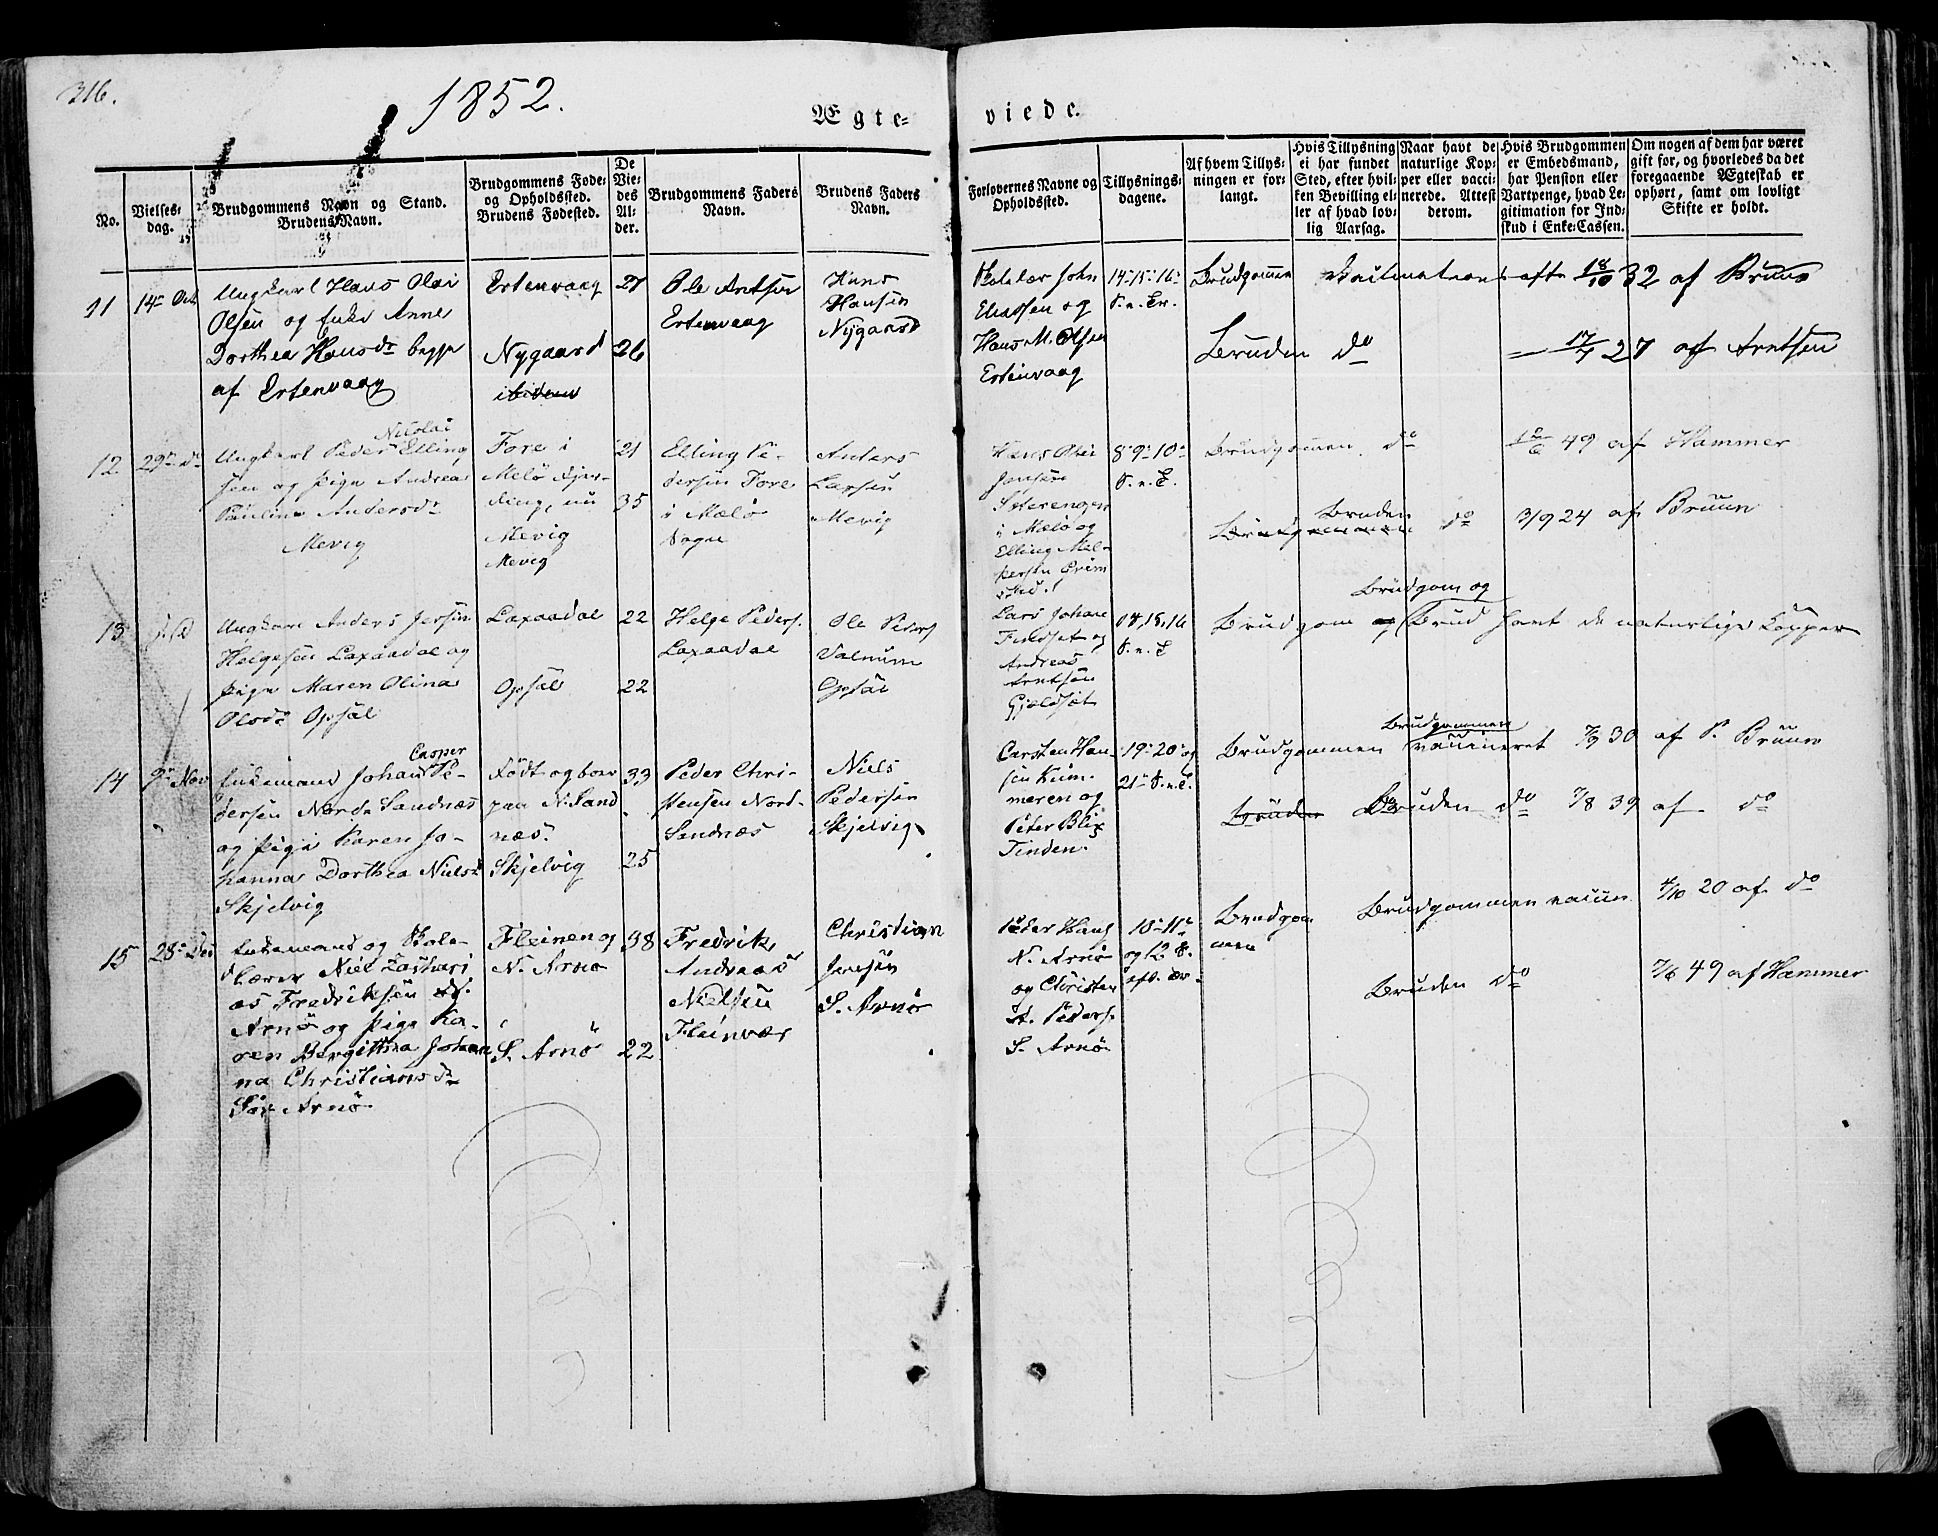 316.
1852.
Ægte-
viede.
No.
Vielses-
dag.
Brudgommens Navn og Stand.
Brudens Navn.
Brudgommens Føde-
og Opholdssted.
Brudens Fødested.
De
Vie-
des
Al-
der.
Brudgommens Faders
Navn.
Brudens Faders
Navn.
Forlovernes Navne og
Opholdssted.
Tillysnings-
dagene.
Af hvem Tillys-
ningen er for-
langt.
Hvis Tillysning
ei har fundet
Sted, efter hvil-
ken Bevilling el-
ler af hvad lov-
lig Aarsag.
Naar havt de
naturlige Kop-
per eller vacci-
nerede. Attest
derom.
Hvis Brudgommen
er Embedsmand,
har Pension eller
Vartpenge, hvad Le-
gitimation for Ind-
skud i Enke-Cassen.
Om nogen af dem har været
gift før, og hvorledes da det
foregaaende Ægteskab er
ophørt, samt om lovligt
Skifte er holdt.
11
14de Oct
Ungkarl Hans Olai
Olsen og Enke Anne
Dorthea Hansdr begge
af Ertenvaag
Ertenvaag
Nygaard
ibidem
27
26
Ole Arntsen
Ertenvaag
Hans
Hansen
Nygaard
John
Eliassen og
Hans M. Olsen
Ertenvaag
14-15-16-
S. e. Tr.
Brudgommen
Bruden do
18/10 32 af Bruun
17/7 27 af Arntsen
12
29de do
Nicolai
Ungkarl Peder Elling
sen og Pige Andrea
Pauline Andersdr
Mevig
Fore i
Melø Fjer-
ding, nu
Mevig
Mevig
21
35
Elling Pe-
dersen Fore
i Melø
Sogn
Anders
Larsen
Mevig
Hans Olai
Jensen
i Melø og
Elling
8-9-10-
S. e. T.
Brudgommen do
49 af Hammer
Bruden
Brudgommen do 3/9 24 af Bruun
13
Ungkarl Anders Jersin
Helgesen Laxaadal og
Pige Maren Olina
Olsdr Opsal
Laxaadal
Opsal
22
22
Helge Peders.
Laxaadal
Ole Peders
Valnum
Opsal
Lars Johan
Findset og
Andreas
Arntsen
Gjeldset
14,15,16
S. e. T
Brudgom og
Brudgom og Brud havt de naturlige Kopper
14
9de Nov
Casper
Enkemand Johan Pe-
dersen Nordr Sandnæs
og Pige Karen Jo-
hanna Dorthea Nielsdr
Skjelvig
Født og boer
paa N. Sand
næs.
Skjelvig
33
25
Peder Chri-
stensen Nord-
Sandnæs
Niels
Pedersen
Skjelvig
Carsten Han-
sen Kum-
meren og
Peter Blix
Tinden.
19-20-og
21- S. e. T.
Brudgommen
Brudgommen vaccineret 7/9 30 af P. Bruun
Bruden Bruden do 7/8 39 af do
15
28de Dec
Enkemand og Skole-
lærer Niels Zachari
as Fredriksen
Arnø og Pige Ka-
ren Bergitha Johan
na Christiansdr
Sør Arnø
Fleinen og
N. Arnø
S. Arnø
38
22
Fredrik
Andreas
Nielsen
Fleinvær
Christian
Jensen
S. Arnø
Peder Hans
N. Arnø
og Christen
St. Peders.
S. Arnø
10-11-
og 12 S.
Brudgom
men
Brudgommen vaccin. 4/10 20 af do
Bruden do 7/6 49 af Hammer